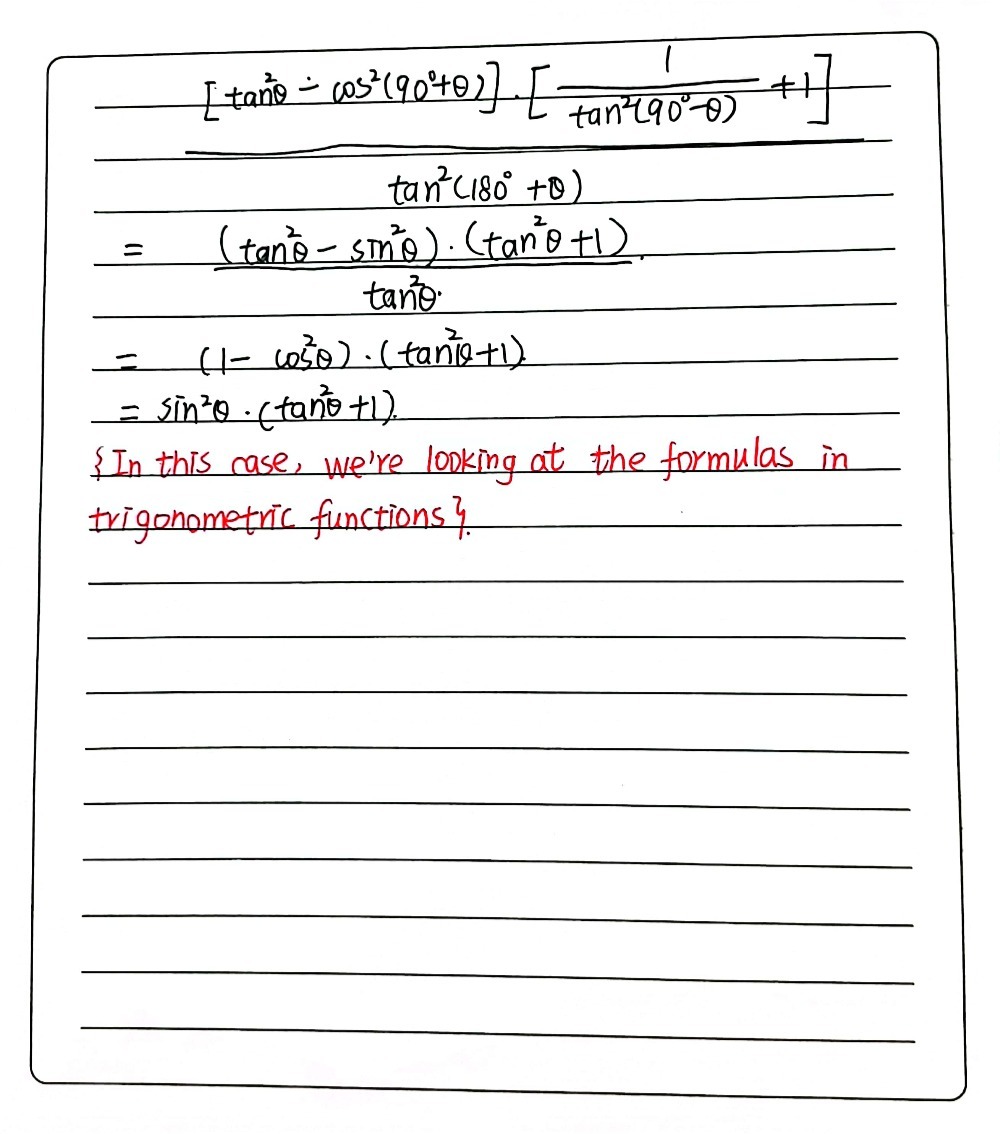 [tan²θ - cos²(90°+θ)]·[1/tan²(90°-θ) +1]
tan²(180° +θ)
= (tan²θ - sin²θ)·(tan²θ +1).
tan²θ.
= (1- cos²θ)·(tan²θ+1).
= sin²θ·(tan²θ+1).
{In this case, we're looking at the formulas in
trigonometric functions}.